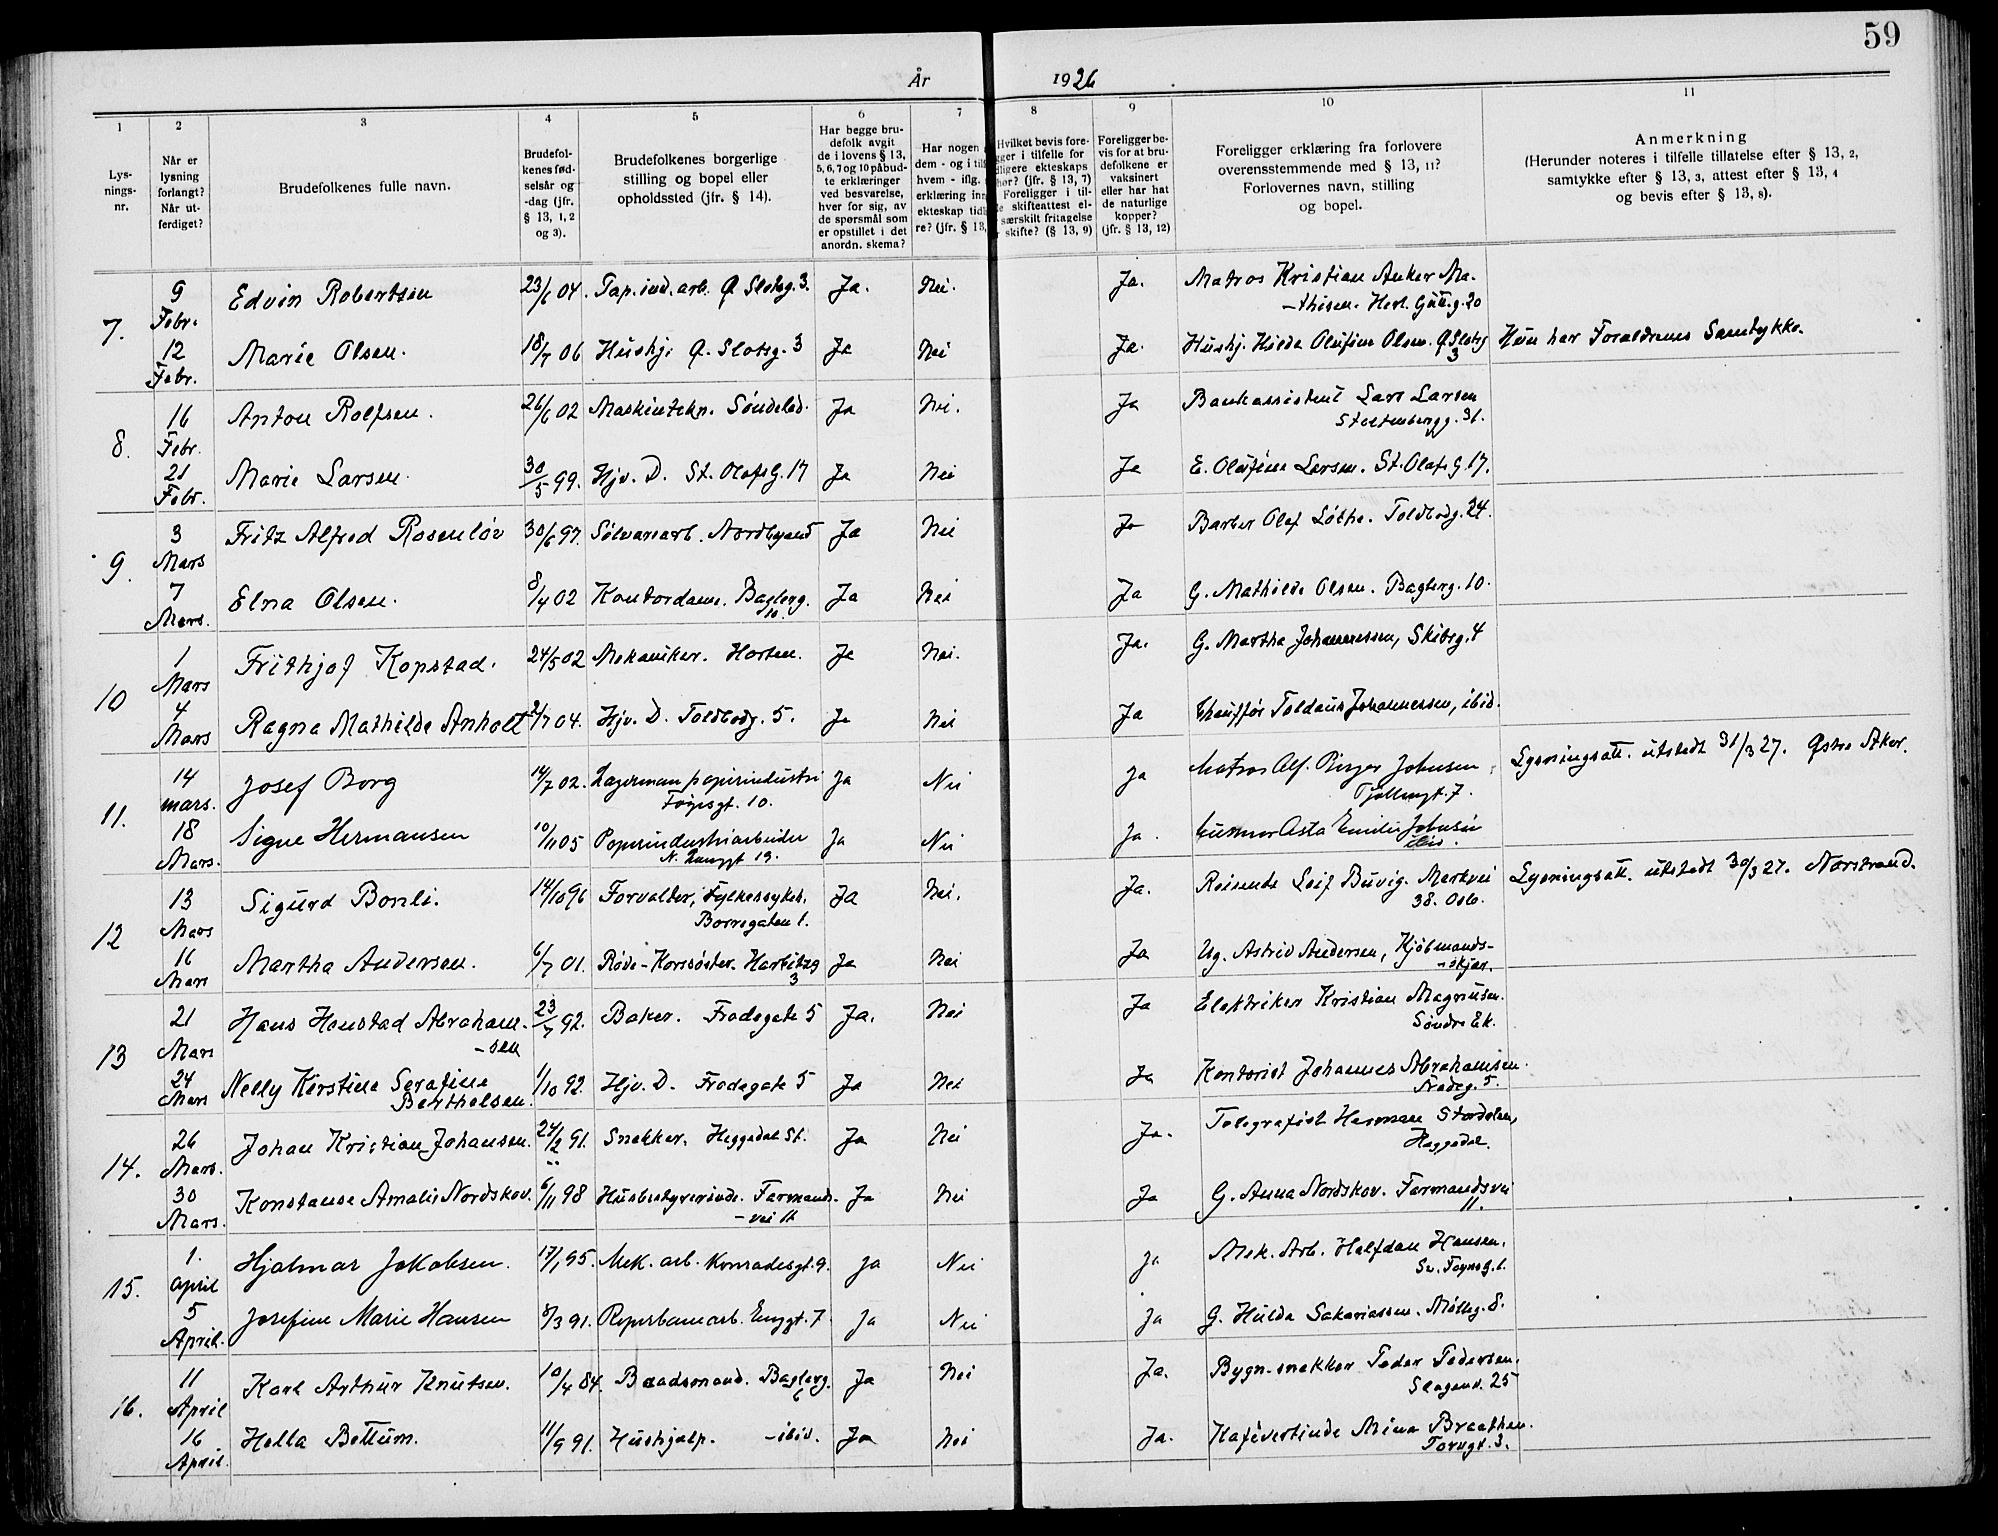 59
År 1926
1 2 3 4 5 6 7 8 9 10 11
Lys-
nings-
nr.
Når er
lysning
forlangt?
Når ut-
ferdiget?
Brudefolkenes fulle navn.
Brudefol-
kenes fød-
selsår og
-dag (jfr.
§ 13, 1, 2
og 3).
Brudefolkenes borgerlige
stilling og bopel eller
opholdssted (jfr. § 14).
Har begge bru-
defolk avgit
de i lovens § 13,
5, 6, 7 og 10 påbud-
te erklæringer
ved besvarelse,
hver for sig, av
de spørsmål som
er opstillet i det
anordn. skema?
Har nogen
dem - og i til
hvem - iflg.
erklæring inn
ekteskap tid
re? (jfr. § 13,
Hvilket bevis fore-
gger i tilfelle for
dligere ekteskaps
hør? (jfr. § 13, 7)
Foreligger i til-
e skifteattest el-
særskilt fritagelse
r skifte? (§ 13, 9)
Foreligger be-
vis for at bru-
defolkene er
vaksinert
eller har hat
de naturlige
kopper?
(jfr. § 13, 12)
Foreligger erklæring fra forlovere
overensstemmende med § 13, 11?
Forlovernes navn, stilling
og bopel.
Anmerkning
(Herunder noteres i tilfelle tillatelse efter § 13, 2,
samtykke efter § 13, 3, attest efter § 13, 4
og bevis efter § 13, 8).
7. 9 Febr. Edvin Robertsen 23/6 04. Tap.ind.arb. Q. Slotsg. 3. Ja. Nei. Ja. Matros Kristian Anker Ma-
-thisen. Herl. Gått.g. 20
12 Febr. Marie Olsen. 18/7 06 Hushj. Q. Slotsg. 3 Ja Nei Ja. Hushj. Hilda Olufine Olsen. Q Slotsg 3 Hun har Forældrenes Samtykke.
8. 16 Febr. Anton Rolfsen. 26/6 02 Maskintekn. Söndeled. Ja Nei. Ja Bankassistent Lars Larsen
Stoltenbergg. 31.
21 Febr. Marie Larsen. 30/5 99. Hjv. D. St. Olafs G. 17 Ja Nei Ja E. Olufine Larsen. St. Olafs G 17.
9. 3 Mars Fritz Alfred Rosenløv 30/6 97. Sølvarearb. Nordbyend Ja Nei Ja Barber Olaf Löthe. Toldbodg. 24.
7 Mars. Elna Olsen. 8/4 02 Kontordame. Baglerg. 10. Ja Nei Ja G. Mathilde Olsen. Baglerg. 10.
10 1 Mars Frithjof Kopstad. 24/5 02 Mekaniker. Horten. Ja Nei. Ja. G. Martha Johannessen, Skibsg. 4
4 Mars Ragna Mathilde Anholt 21/7 04. Hjv. D. Toldbodg. 5. Ja Nei Ja Chauffør Johannessen, ibid.
11. 14 mars. Josef Borg 14/7 02. Lagerman papirindustri
Föynsgt. 10. Ja Nei Ja Matros Alf. Birger Johnsen
Tjøllinggt. 7. Lysningsatt. utstedt 31/3 27. Østre Aker.
18 Mars. Signe Hermansen 10/11 05 Papirindustriarbeider
N. Langgt 19. Ja Nei Ja. Asta Emilie Johnsen
ibid.
12 13 Mars Sigurd Bonli. 14/10 96 Forvalter, Fylkessykeh.
Borregaten 1. Ja Nei. Ja. Reisende Leif Buvig. Markvei
38. Oslo. Lysningsatt. utstedt 30/3 27. Norstrand.
16 Mars Martha Andersen. 6/7 01. Røde-Korssöster. Harbitzg 3 Ja Nei Ja Ug. Astrid Andersen, Kjöbmands-
-skjær.
13 21 Mars Hans Henstad Abraham-
-sen 23/7 92. Baker. Frodegate 5 Ja. Nei Ja Elektriker Kristian Magnusen.
Söndre Ek.
24 Mars Nelly Kirstine Serafine
Berthelsen. 1/10 92. Hjv. D. Frodegate 5 Ja Nei Ja Kontorist Johannes Abrahamsen.
Frodeg. 5.
14. 26 Mars. Johan Kristian Johansen. 24/2 91. Snekker. Heggedal St. Ja Nei Ja. Telegrafist Herman Stordalen,
Heggedal.
30 Mars. Konstanse Amalie Nordskov. 6/11 98 Husbestyrerinde. Farmands-
-vei 11 Ja Nei Ja G. Anna Nordskov. Farmandsvei
11.
15. 1. april Hjalmar Jakobsen. 17/1 95. Mek. arb. Konradesgt. 9. Ja Nei Ja Mek. Arb. Halfdan Hansen.
Sv. Foynsg. 1.
5 April. Josefine Marie Hansen 8/3 91. Reperbanearb. Enggt. 7 Ja Nei Ja G. Hulda Sakariassen. Mølleg. 8.
16. 11 April Karl Arthur Knutsen. 10/4 84. Baadsmand. Baglerg. 6 Ja Nei Ja. Bygn.snekker Peder Pedersen.
Slagenv. 25
16 April. Hella Bottum. 11/9 91. Hushjælp. -ibid. Ja Nei Ja. Kafévertinde Mina Braathen.
Torvgt. 3.